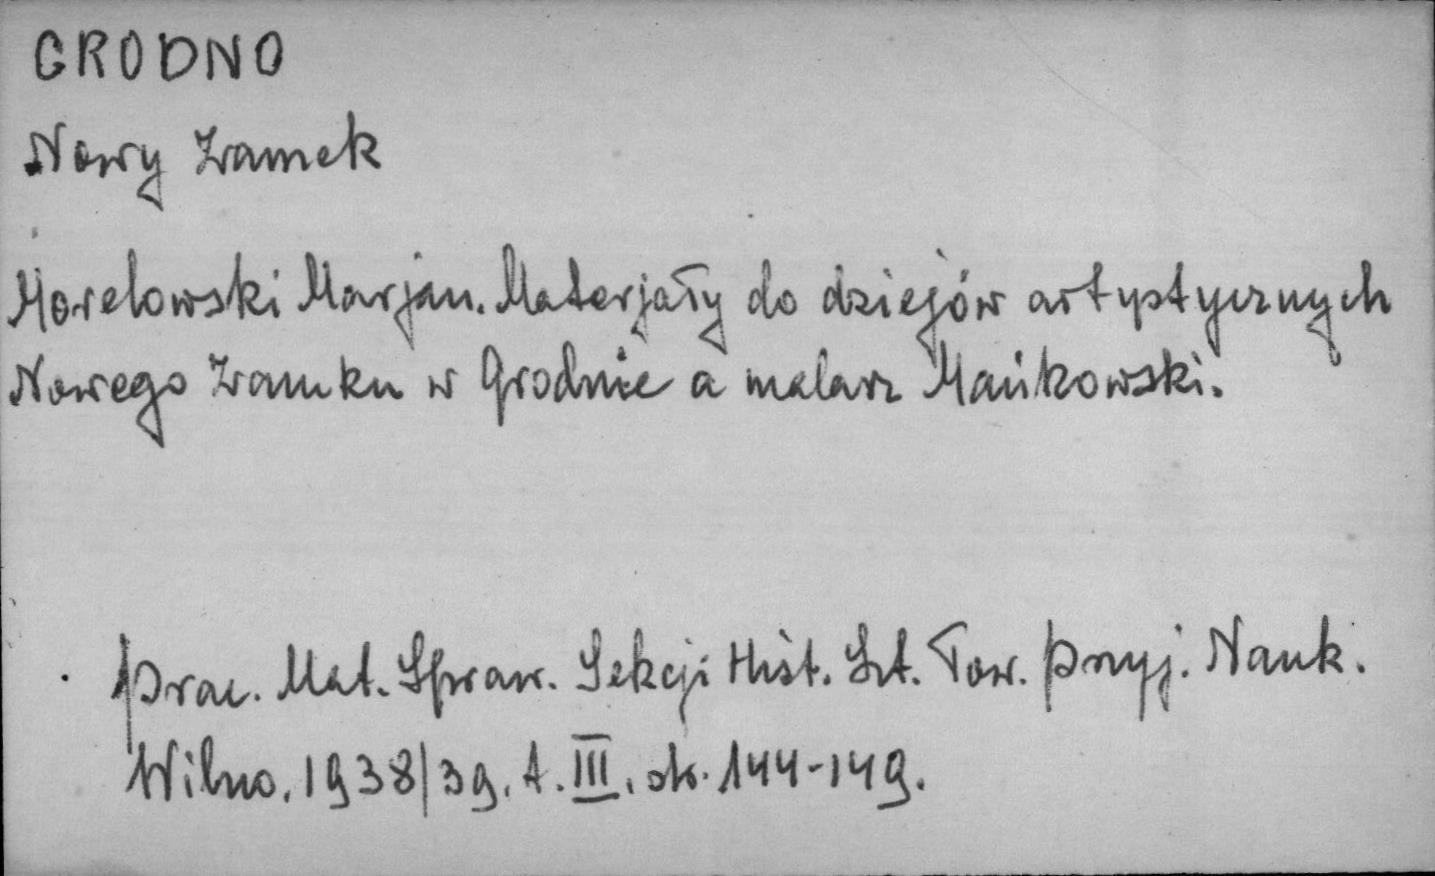 GRODNO
Nowy Zamek
Morelowski Marjan. Materjały do dziejów artystycznych
Nowego Zamku w Grodnie a malarz Mańkowski.
Prac. Mat. Spraw. Sekcji Hist. Szt. Tow. Przyj. Nauk.
Wilno, 1938/39, t. III, str. 144-149.